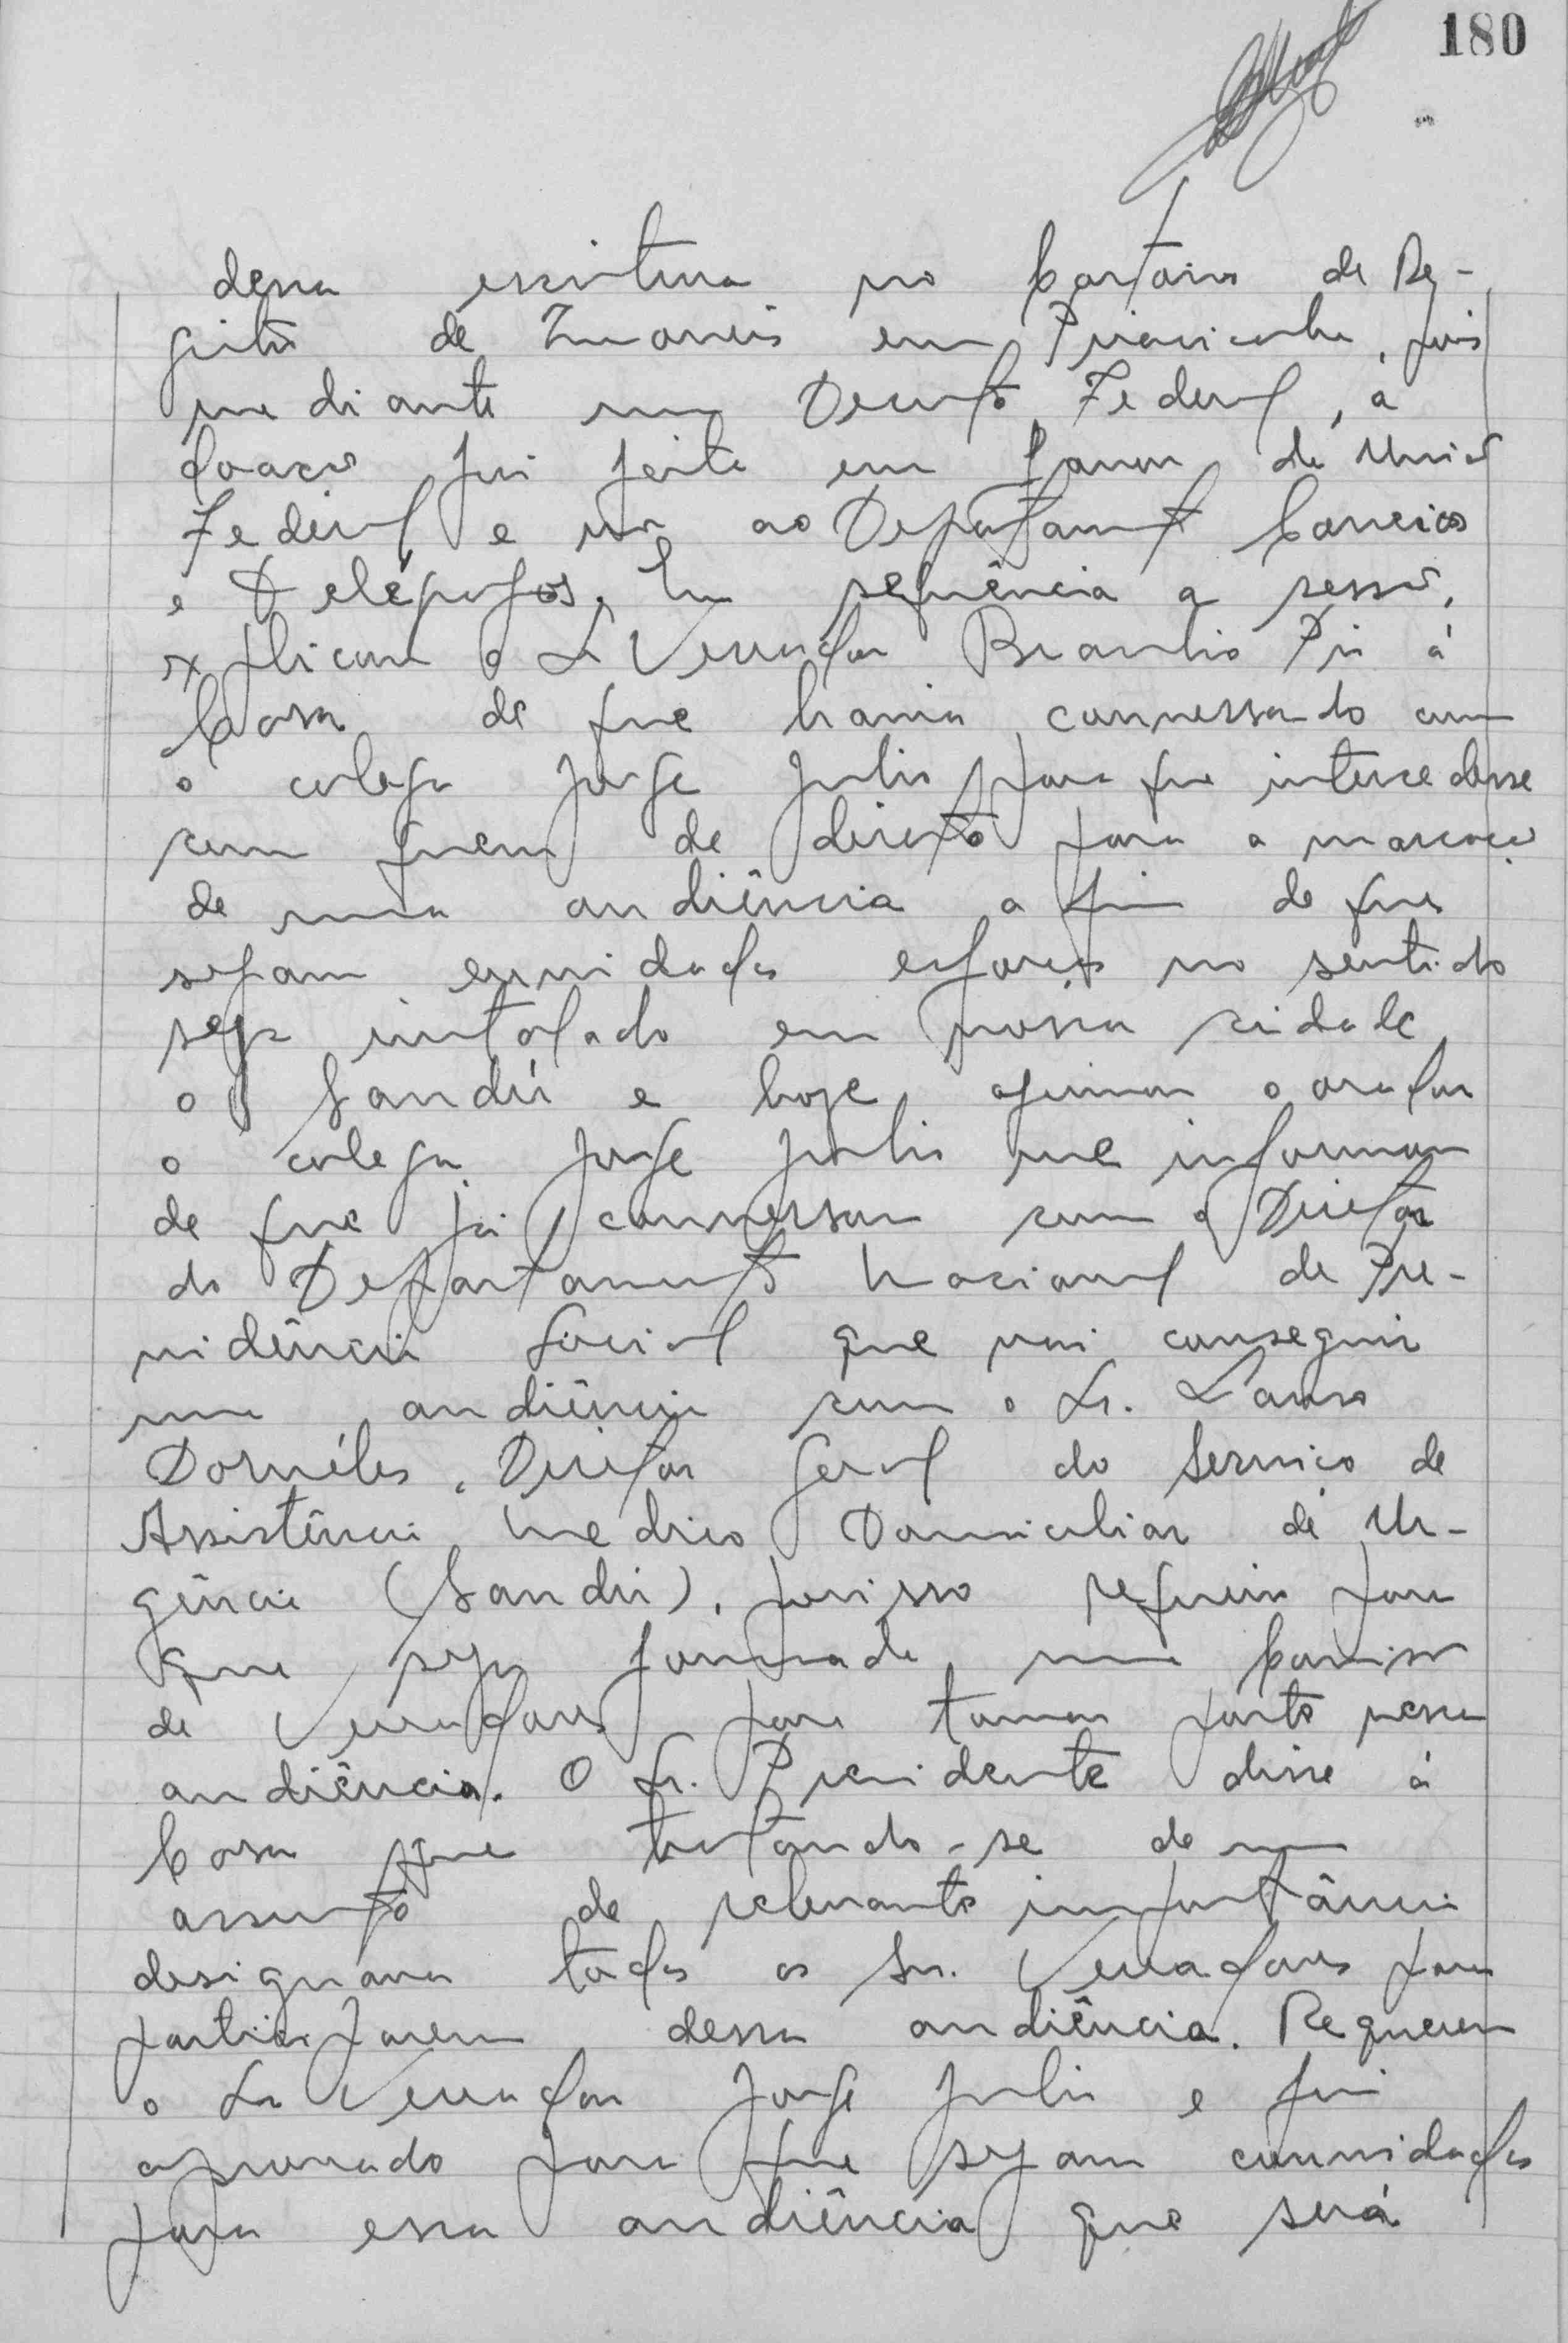 180
dessa escritura no Cartório de Re-
gistro de Imoveis em Piracicaba, pois
mediante um Decreto Federal, a
doação foi feita em favor da União
Federal e não ao Departamento Correios
e Telégrafos. Em sequência a sessão,
explicou o Sr Vereador Braulio Pio à
Casa de que havia conversado com
o colega Jorge Julio para que intercedesse
com quem de direito para a marcação
de uma audiência a fim de que
sejam envidados esforços no sentido
seja instalado em nossa cidade
o Sandú e hoje, afirmou o orador
o colega Jorge Julio me informou
de que já conversou com o Diretor
do Departamento Nacional de Pre-
vidência Social que vai conseguir
uma audiência com o Sr. Lauro
Dornéles, Diretor Geral do Serviço de
Assistência Medico Domiciliar de Ur-
gência (Sandú), porisso requeria para
que seja formada uma Comissão
de Vereadores para tomar parte nessa
audiência. O Sr. Presidente disse à
Casa que tratando-se de um
assunto de relevante importância
designava todos os Srs. Vereadores para
participarem dessa audiência. Requereu
o Sr Vereador Jorge Julio e foi
aprovado para que sejam convidados
para essa audiência que será